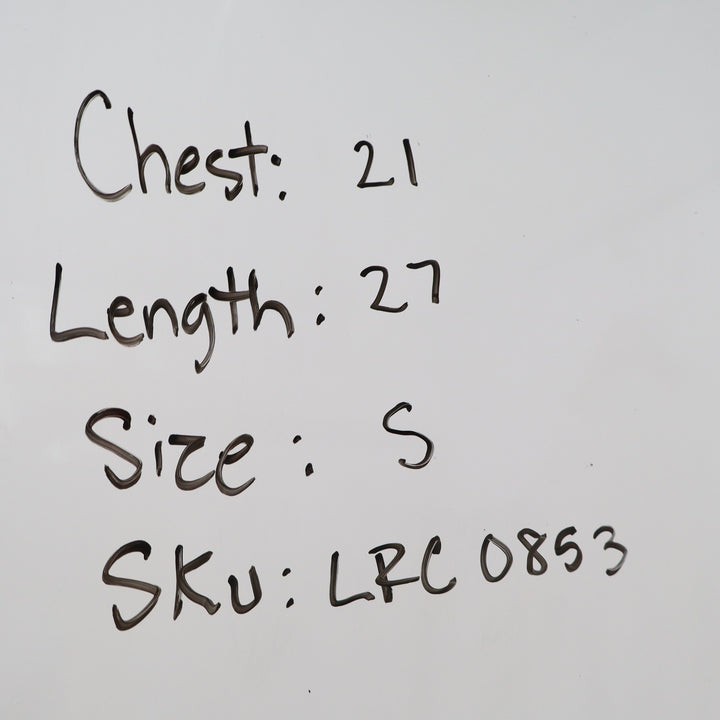 Chest: 21
Length: 27
Size: S
SKU: LRC 0853